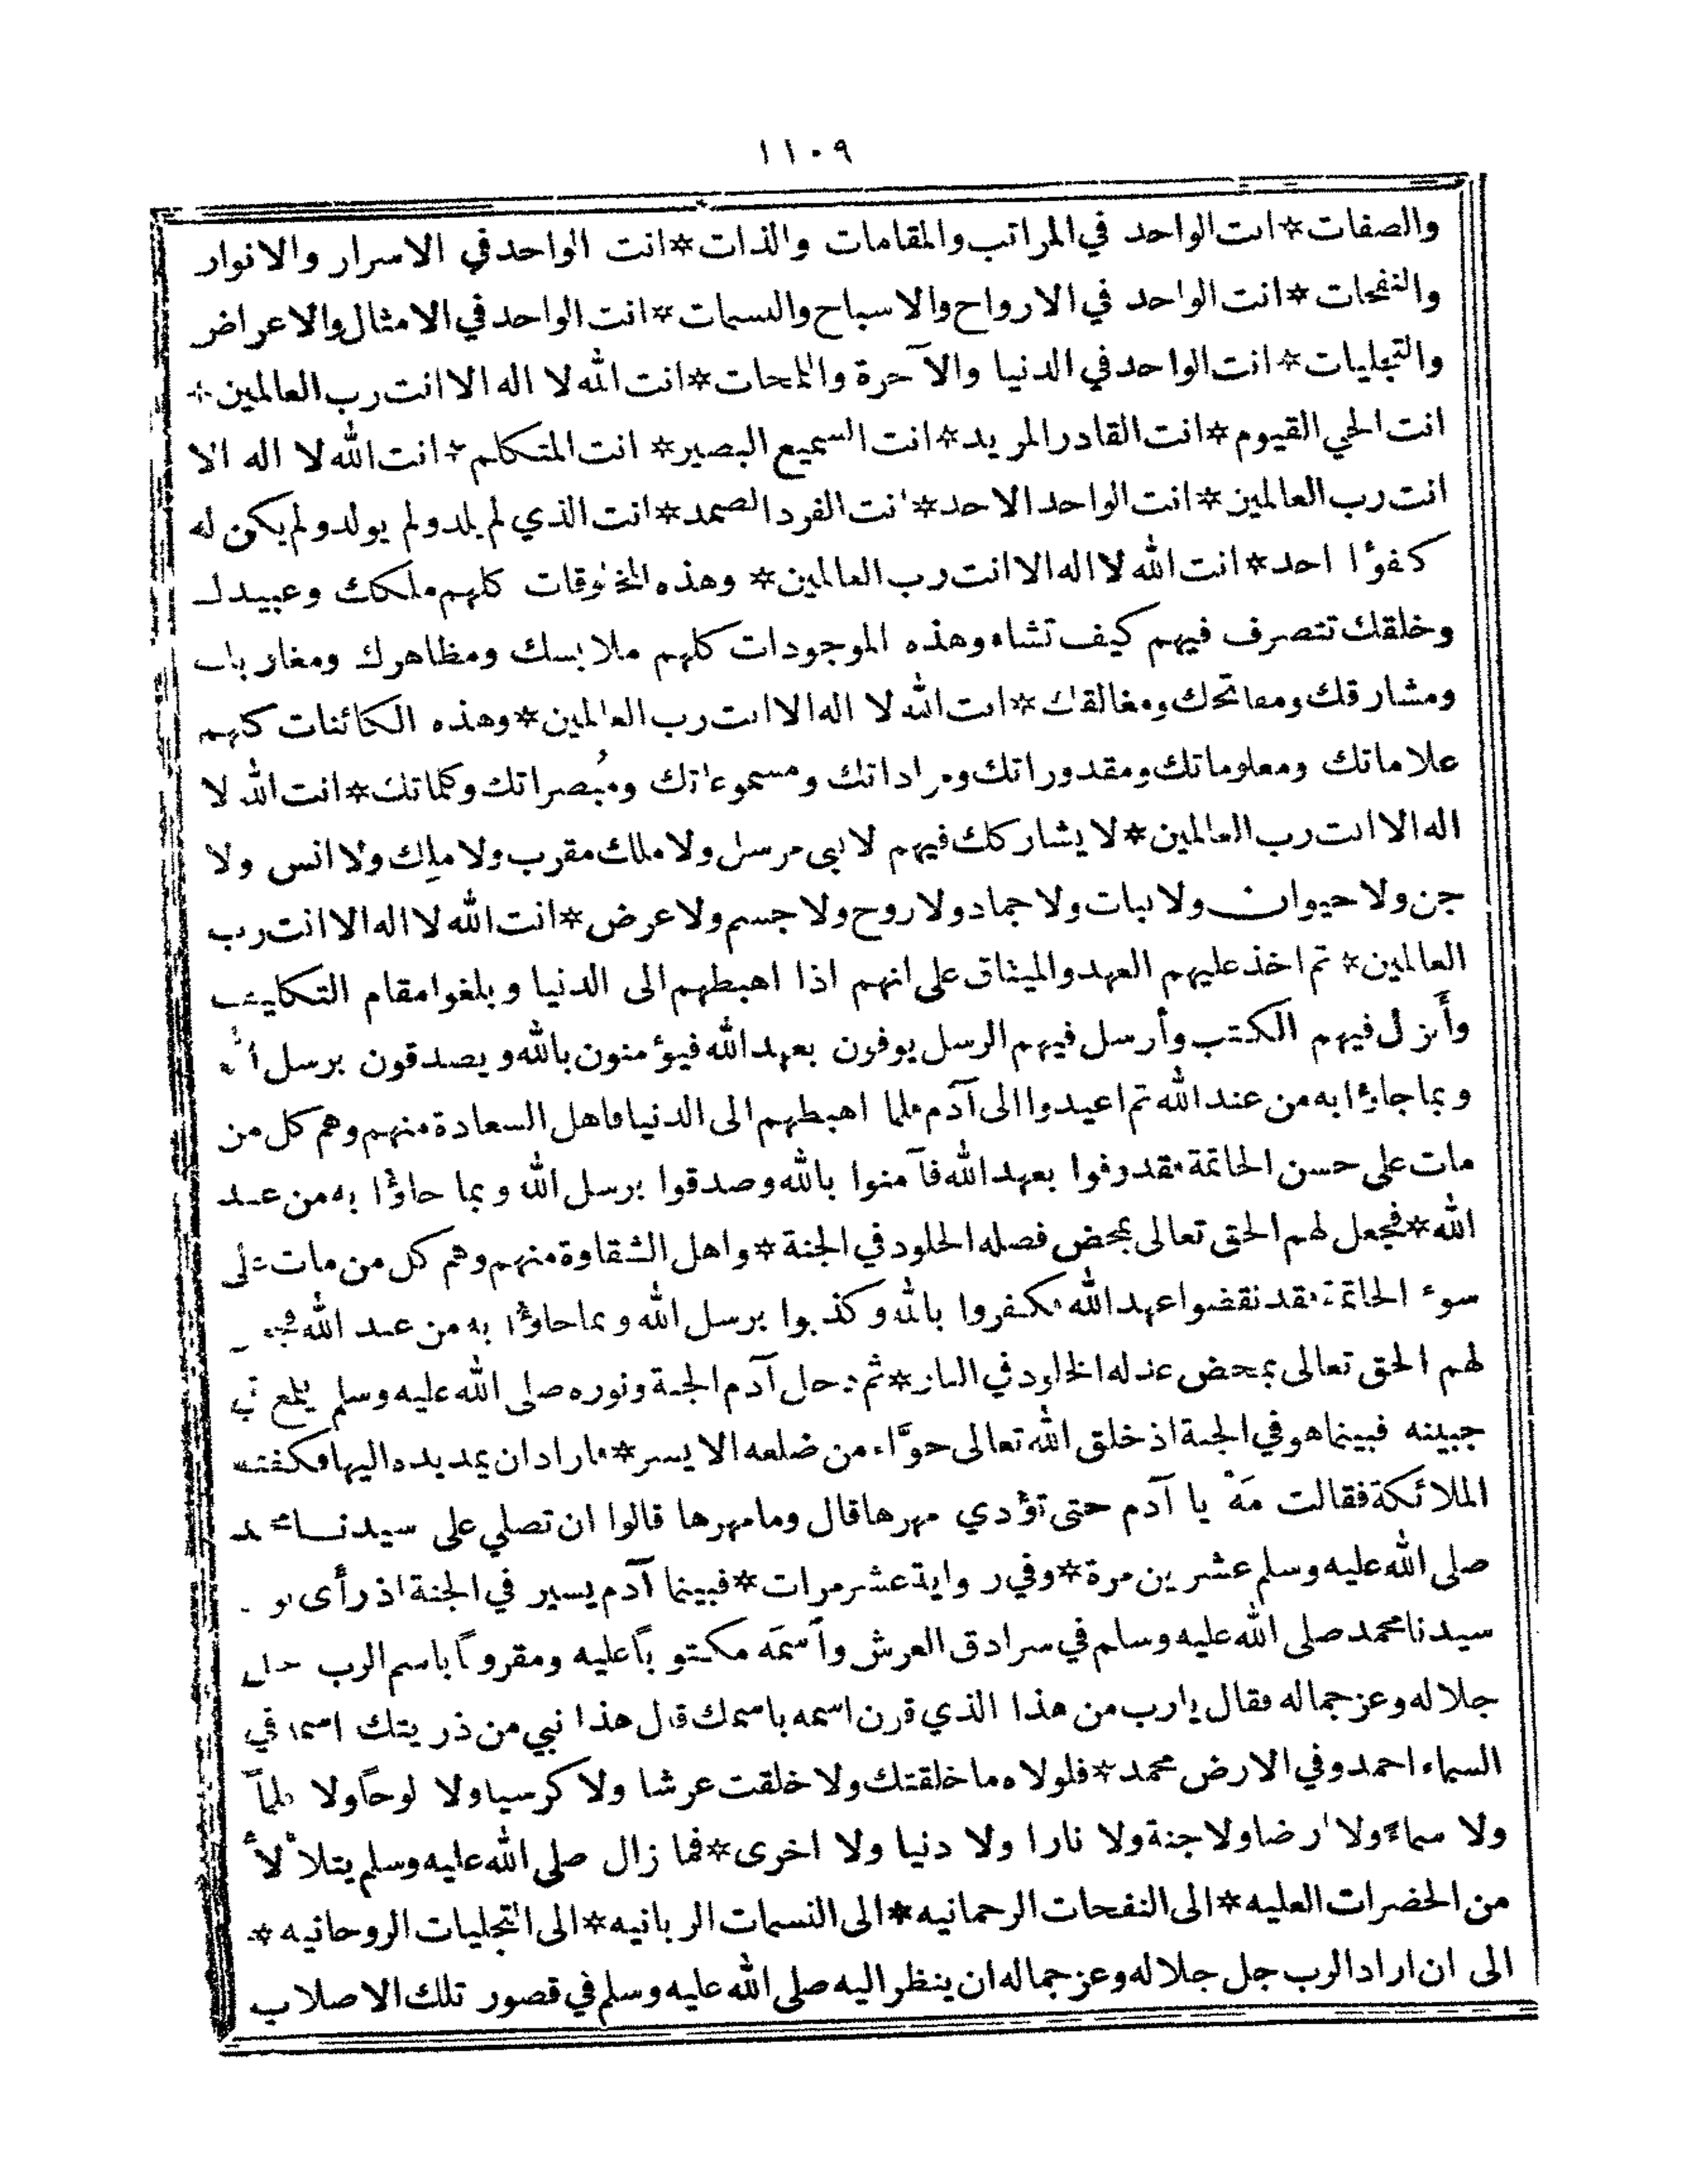 ١١٠٩
والصفات * انت الواحد في المراتب والمقامات والذات * انت الواحد في الاسرار والانوار
والنفحات * انت الواحد في الارواح والاسباح والنسمات * انت الواحد في الامثال والاعراض
والتجليات * انت الواحد في الدنيا والآخرة واللمحات * انت الله لا اله الا انت رب العالمين *
انت الحي القيوم * انت القادر المريد * انت السميع البصير * انت المتكلم * انت الله لا اله الا
انت رب العالمين * انت الواحد الاحد * انت الفرد الصمد * انت الذي لم يلد ولم يولد ولم يكن له
كفوًا احد * انت الله لا اله الا انت رب العالمين * وهذه المخلوقات كلهم ملكك وعبيدك
وخلقك تتصرف فيهم كيف تشاء وهذه الموجودات كلهم ملابسك ومظاهرك ومغاربك
ومشارقك ومفاتحك ومغالقك * انت الله لا اله الا انت رب العالمين * وهذه الكائنات كلهم
علاماتك ومعلوماتك ومقدوراتك ومراداتك ومسموعاتك ومُبصراتك وكلماتك * انت الله لا
اله الا انت رب العالمين * لا يشاركك فيهم لا نبي مرسل ولا ملك مقرب ولا ملِك ولا انس ولا
جن ولا حيوان ولا نبات ولا جماد ولا روح ولا جسم ولا عرض * انت الله لا اله الا انت رب
العالمين * ثم اخذ عليهم العهد والميثاق على انهم اذا اهبطهم الى الدنيا وبلغوا مقام التكليف
وأنزل فيهم الكتب وأرسل فيهم الرسل يوفون بعهد الله فيؤمنون بالله ويصدقون برسل الله
وبما جاؤا به من عند الله ثم اعيدوا الى آدم فلما اهبطهم الى الدنيا فاهل السعادة منهم وهم كل من
مات على حسن الخاتمة فقد وفوا بعهد الله فآمنوا بالله وصدقوا برسل الله وبما جاؤا به من عند
الله * فجعل لهم الحق تعالى بمحض فضله الخلود في الجنة * واهل الشقاوة منهم وهم كل من مات على
سوء الخاتمة فقد نقضوا عهد الله فكفروا بالله وكذبوا برسل الله وبما جاؤا به من عند الله
لهم الحق تعالى بمحض عدله الخلود في النار * ثم دخل آدم الجنة ونوره صلى الله عليه وسلم يلمع في
جبينه فبينما هو في الجنة اذ خلق الله تعالى حوَّاء من ضلعه الايسر * فاراد ان يمد يده اليها فكفته
الملائكة فقالت مَهْ يا آدم حتى تؤدي مهرها قال وما مهرها قالوا ان تصلي على سيدنا محمد
صلى الله عليه وسلم عشرين مرة * وفي رواية عشر مرات * فبينما آدم يسير في الجنة اذ رأى نور
سيدنا محمد صلى الله عليه وسلم في سرادق العرش وآسمَه مكتوباً عليه ومقروناً باسم الرب جل
جلاله وعز جماله فقال يا رب من هذا الذي قرن اسمه باسمك قال هذا نبي من ذريتك اسمه في
السماء احمد وفي الارض محمد * فلولاه ما خلقتك ولا خلقت عرشا ولا كرسيا ولا لوحاً ولا قلماً
ولا سماءً ولا ارضا ولا جنة ولا نارا ولا دنيا ولا اخرى * فما زال صلى الله عليه وسلم يتلأْلأُ
من الحضرات العليه * الى النفحات الرحمانيه * الى النسمات الربانيه * الى التجليات الروحانيه *
الى ان اراد الرب جل جلاله وعز جماله ان ينظر اليه صلى الله عليه وسلم في قصور تلك الاصلاب